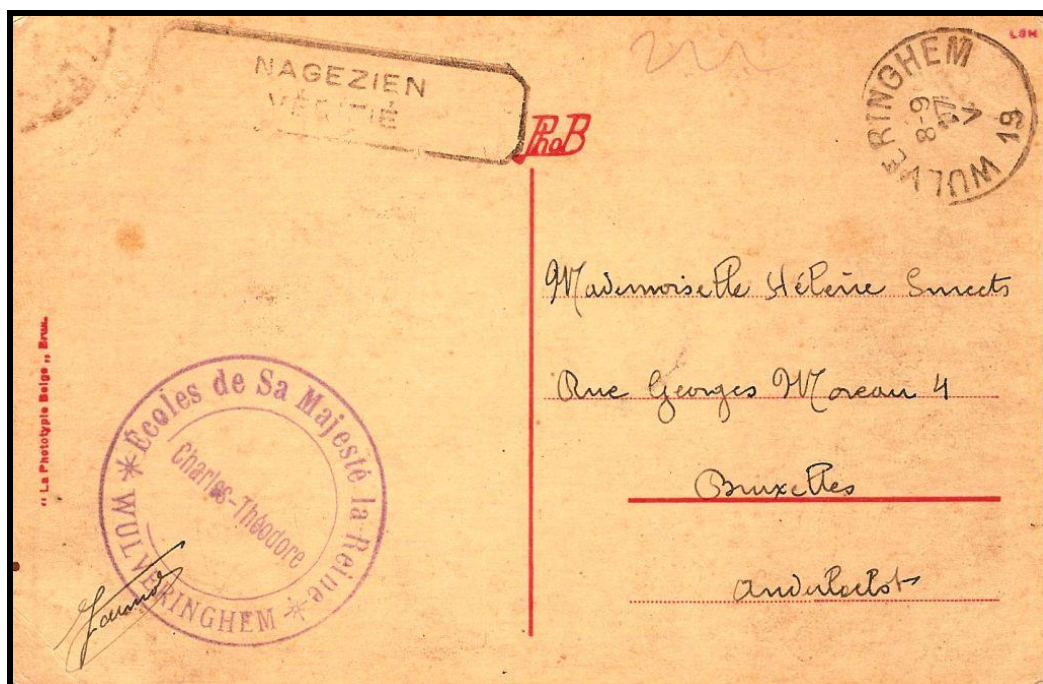 NAGEZIEN
VÉRIFIÉ
PhoB
LBH
WULVERINGHEM
8-9
V
19
Mademoiselle Hélène Smeets
Rue Georges Moreau 4
Bruxelles
Anderlecht
"La Phototypie Belge" Brux.
* Écoles de Sa Majesté la Reine *
WULVERINGHEM
Charles-Théodore